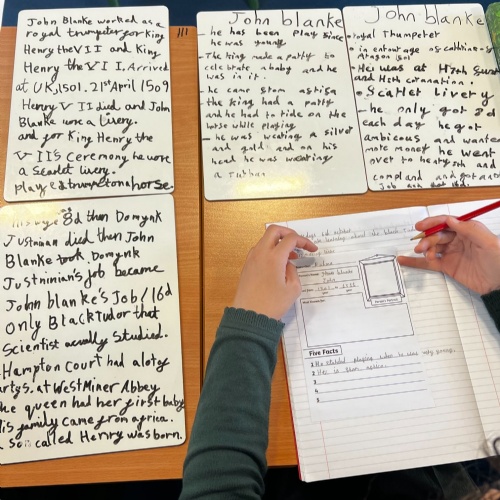 John Blanke worked as a
royal trumpeter for King
Henry the VII and King
Henry the VI I. Arrived
at UK, 1501. 21st April 1509
Henry VII died and John
Blanke wore a livery.
and for King Henry the
VIIS Ceremony he wore
a Scarlet livery.
played trumpet on a horse.
8d then Domynk
Justinian died then John
Blanke took Domynk
Justninian's job became
John blanke's Job/16d
Only Black Tudor that
Scientist acually Studied.
Hampton Court had a lot of
partys. at West Miner Abbey
the queen had her first baby
His family came from africa.
a son called Henry was born.
John blanke
- he has been play since
he was young
- The king made a party to
celebrate a baby and he
was in it.
- he came from
- the king had a party
and he had to ride on the
horse while playing
- he was wearing a silver
and gold and on his
head he was wearing
a
John blanke
- royal Trumpeter
- in entourage of cathrine of
Aragon 1501
- He was at H7th
and H8th coronation.
- Scarlet Livery
- he only got 8d
each day he got
ambicous and wanted
more money he went
over to henry 8th and
and got
Job
Five Facts
1 He started playing when he was very young.
2 He is from
3
4
5